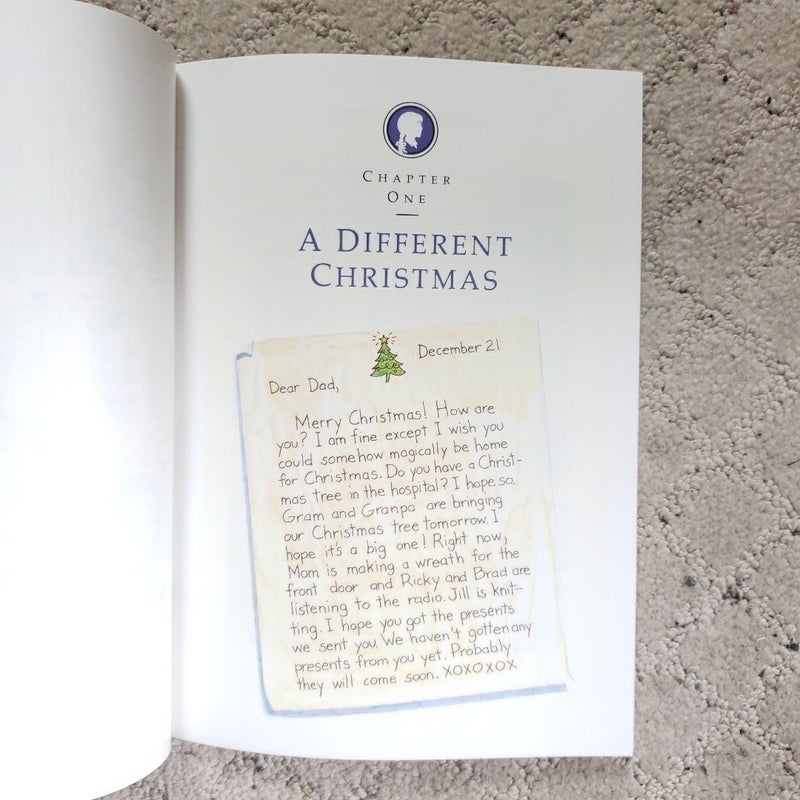 CHAPTER
ONE
A DIFFERENT
CHRISTMAS
December 21
Dear Dad,
Merry Christmas! How are
you? I am fine except I wish you
could somehow magically be home
for Christmas. Do you have a Christ-
mas tree in the hospital? I hope so.
Gram and Granpa are bringing
our Christmas tree tomorrow. I
hope it's a big one! Right now,
Mom is making a wreath for the
front door and Ricky and Brad are
listening to the radio. Jill is knit-
ting. I hope you got the presents
we sent you. We haven't gotten any
presents from you yet. Probably
they will come soon. XOXOXOX